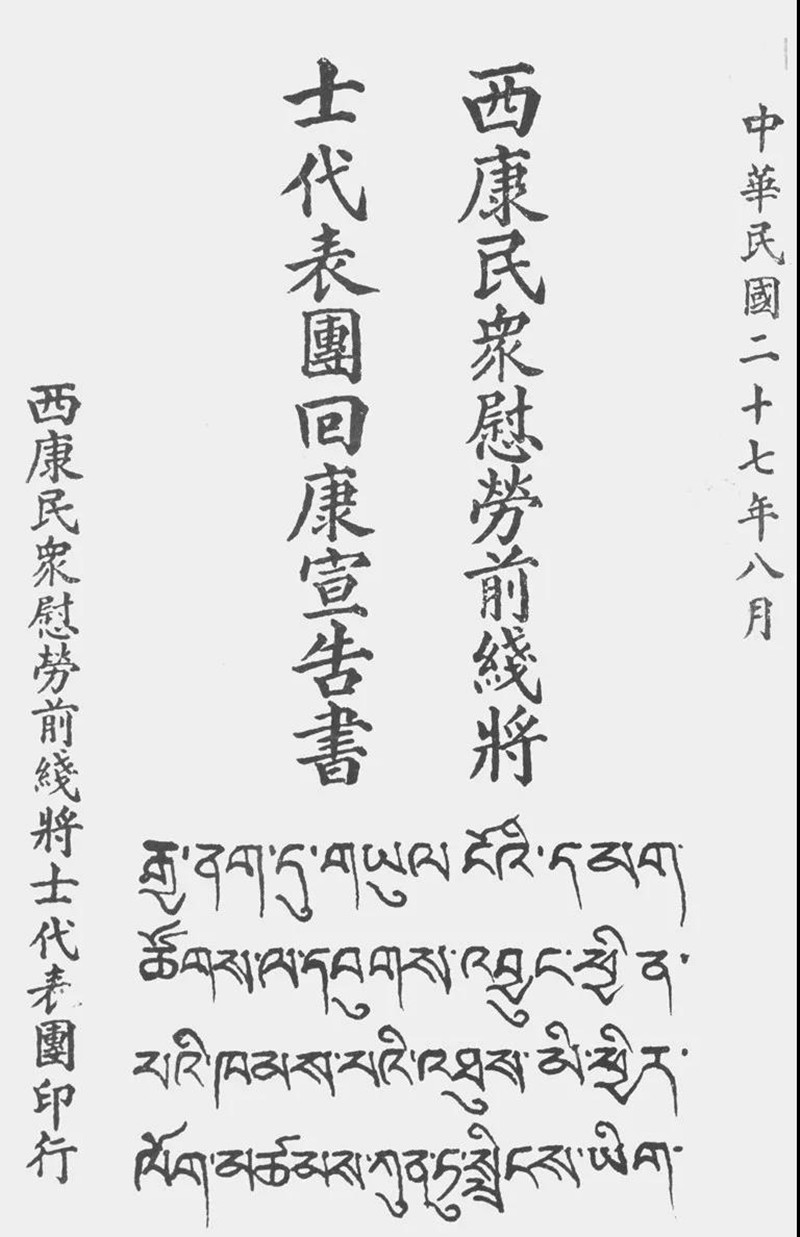 中華民國二十七年八月
西康民衆慰勞前綫將
士代表團回康宣告書
西康民衆慰勞前綫將士代表團印行
རྒྱ་ནག་དུ་གཡུལ་ངོའི་དམག་
ཚོགས་ལ་དབུགས་འབྱུང་ཕྱིན་
པའི་ཁམས་པའི་འཐུས་མི་ཕྱིར་
ལོག་མཚམས་ཀུན་ཏུ་སྤྲིངས་ཡིག་